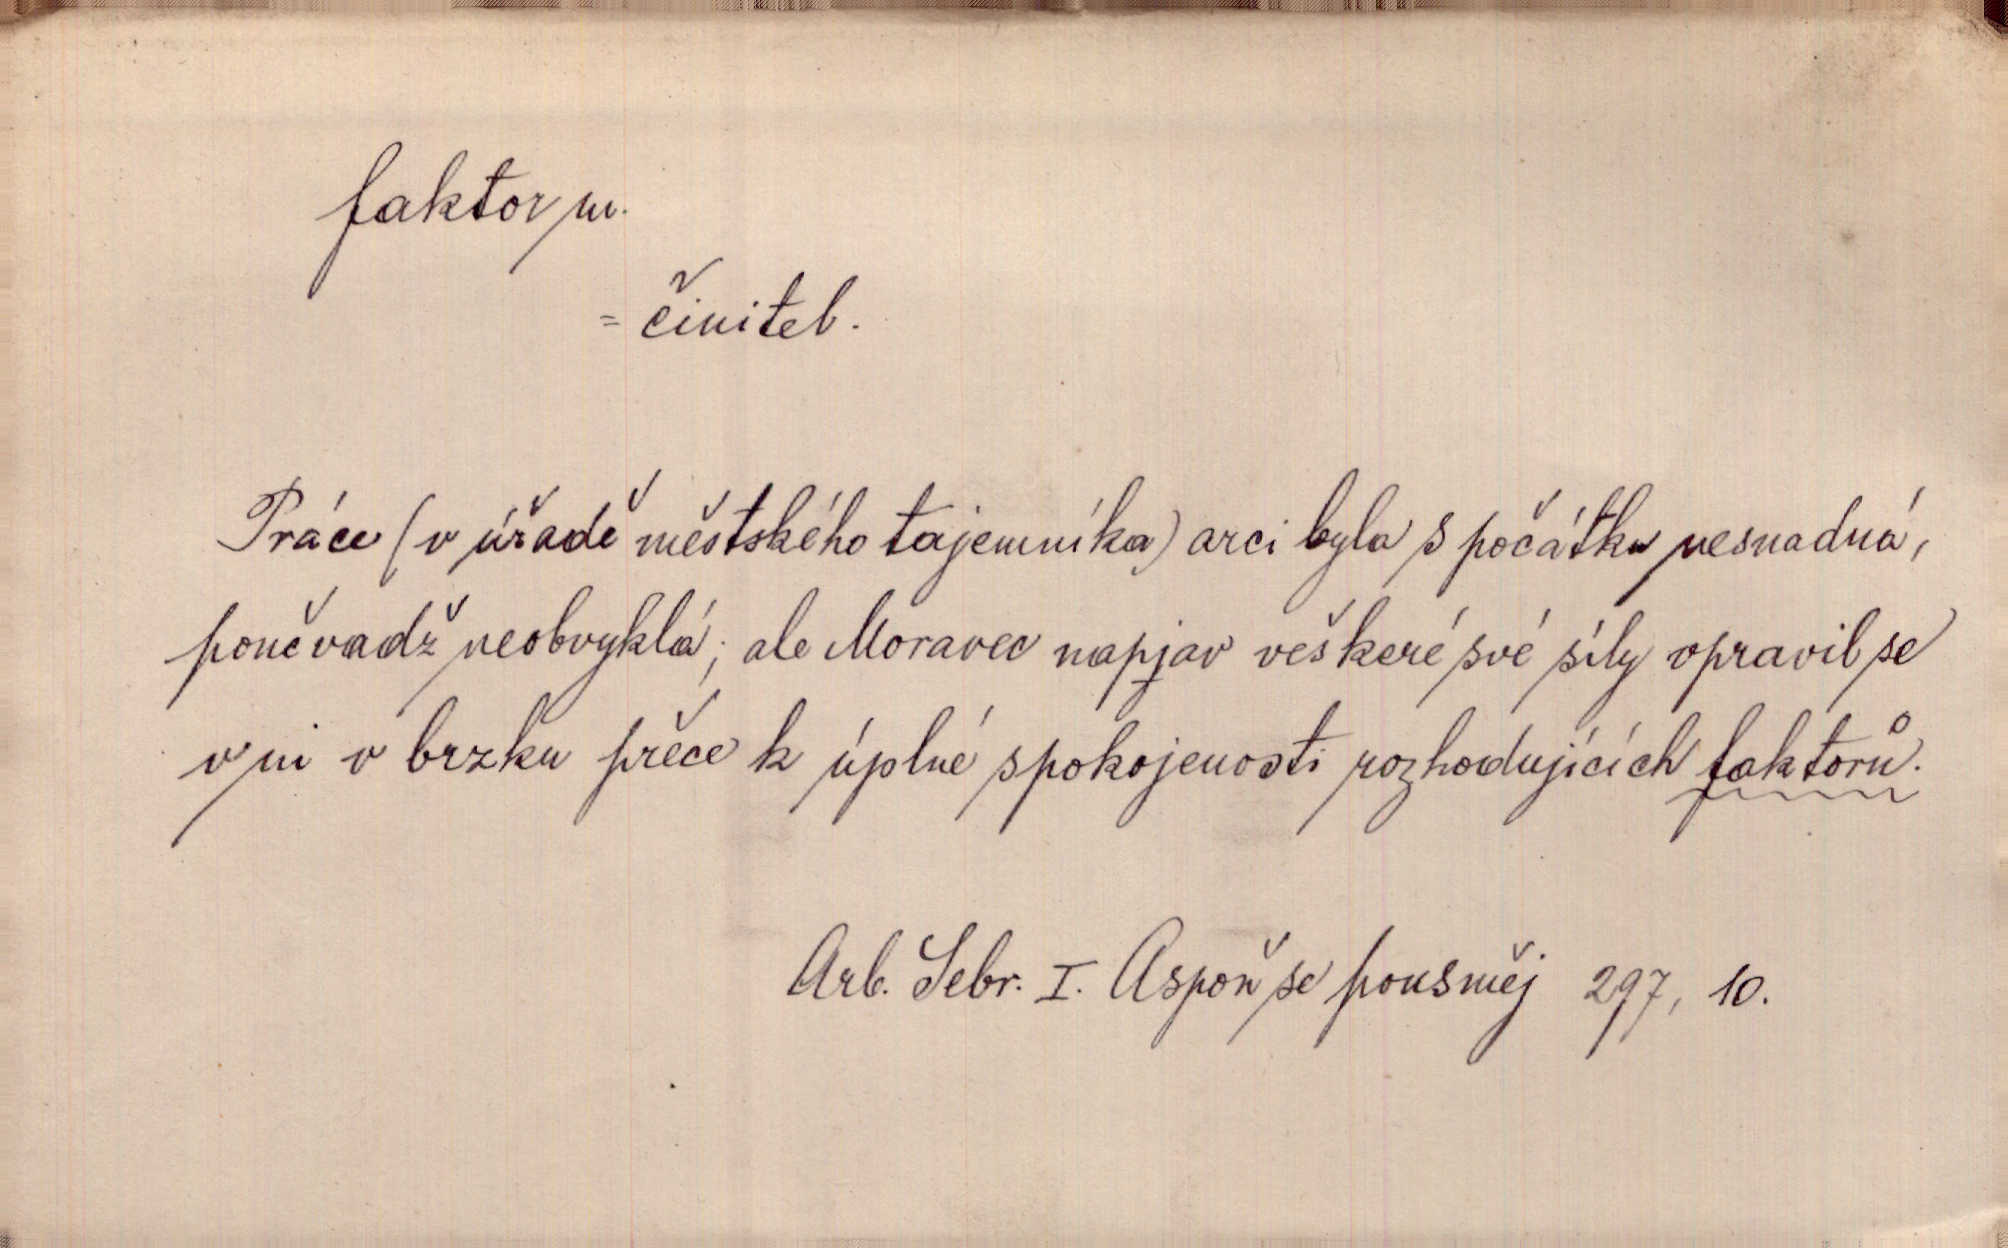 faktor m.
= činitel.
Práce (v úřadě městského tajemníka) arci byla s počátku nesnadná,
poněvadž neobvyklá; ale Moravec napjav veškeré své síly vpravil se
v ni v brzku přece k úplné spokojenosti rozhodujících faktorů.
Arb. Sebr. I. Aspoň se pousměj 297, 10.